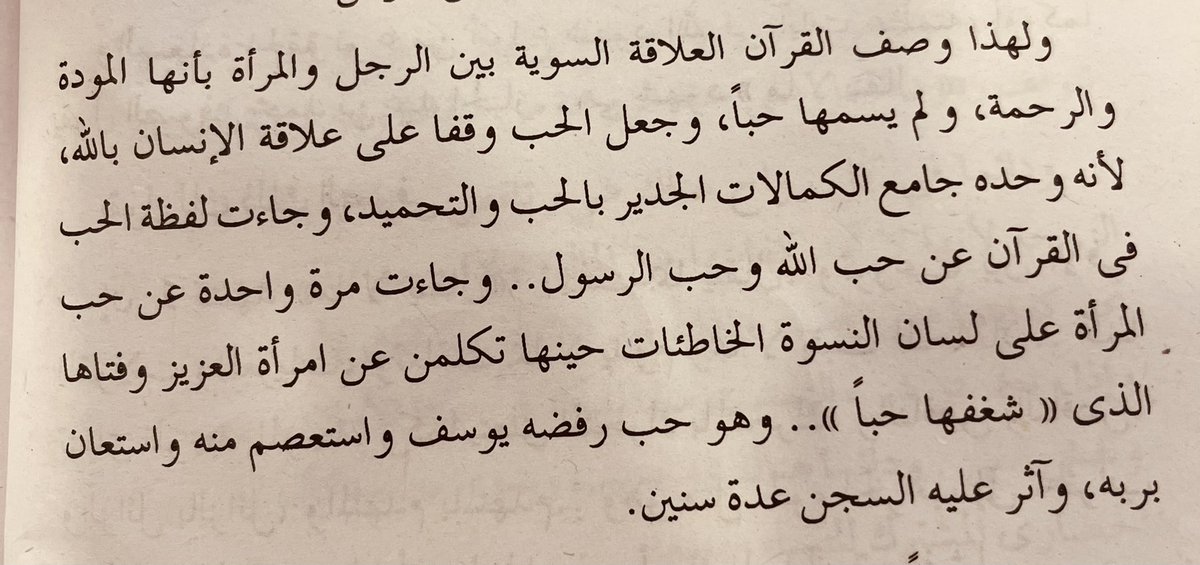 ولهذا وصف القرآن العلاقة السوية بين الرجل والمرأة بأنها المودة
والرحمة، ولم يسمها حباً، وجعل الحب وقفا على علاقة الإنسان بالله،
لأنه وحده جامع الكمالات الجدير بالحب والتحميد، وجاءت لفظة الحب
فى القرآن عن حب الله وحب الرسول.. وجاءت مرة واحدة عن حب
المرأة على لسان النسوة الخاطئات حينها تكلمن عن امرأة العزيز وفتاها
الذى « شغفها حباً ».. وهو حب رفضه يوسف واستعصم منه واستعان
بربه، وآثر عليه السجن عدة سنين.